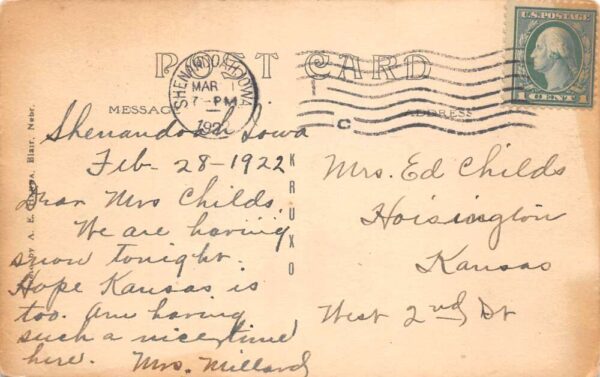 POST CARD
SHENANDOAH, IOWA
MAR 1
7-PM
192
U.S. POSTAGE
1 CENT 1
C
MESSAGE
ADDRESS
Shenandoah Iowa
Feb- 28-1922
Dear Mrs Childs.
We are having
snow tonight.
Hope Kansas is
too. Am having
such a nice time
here. Mrs. Millard
KRUXO
by A. E. Blair, Nebr.
Mrs. Ed Childs
Hoisington
Kansas
West 2nd St